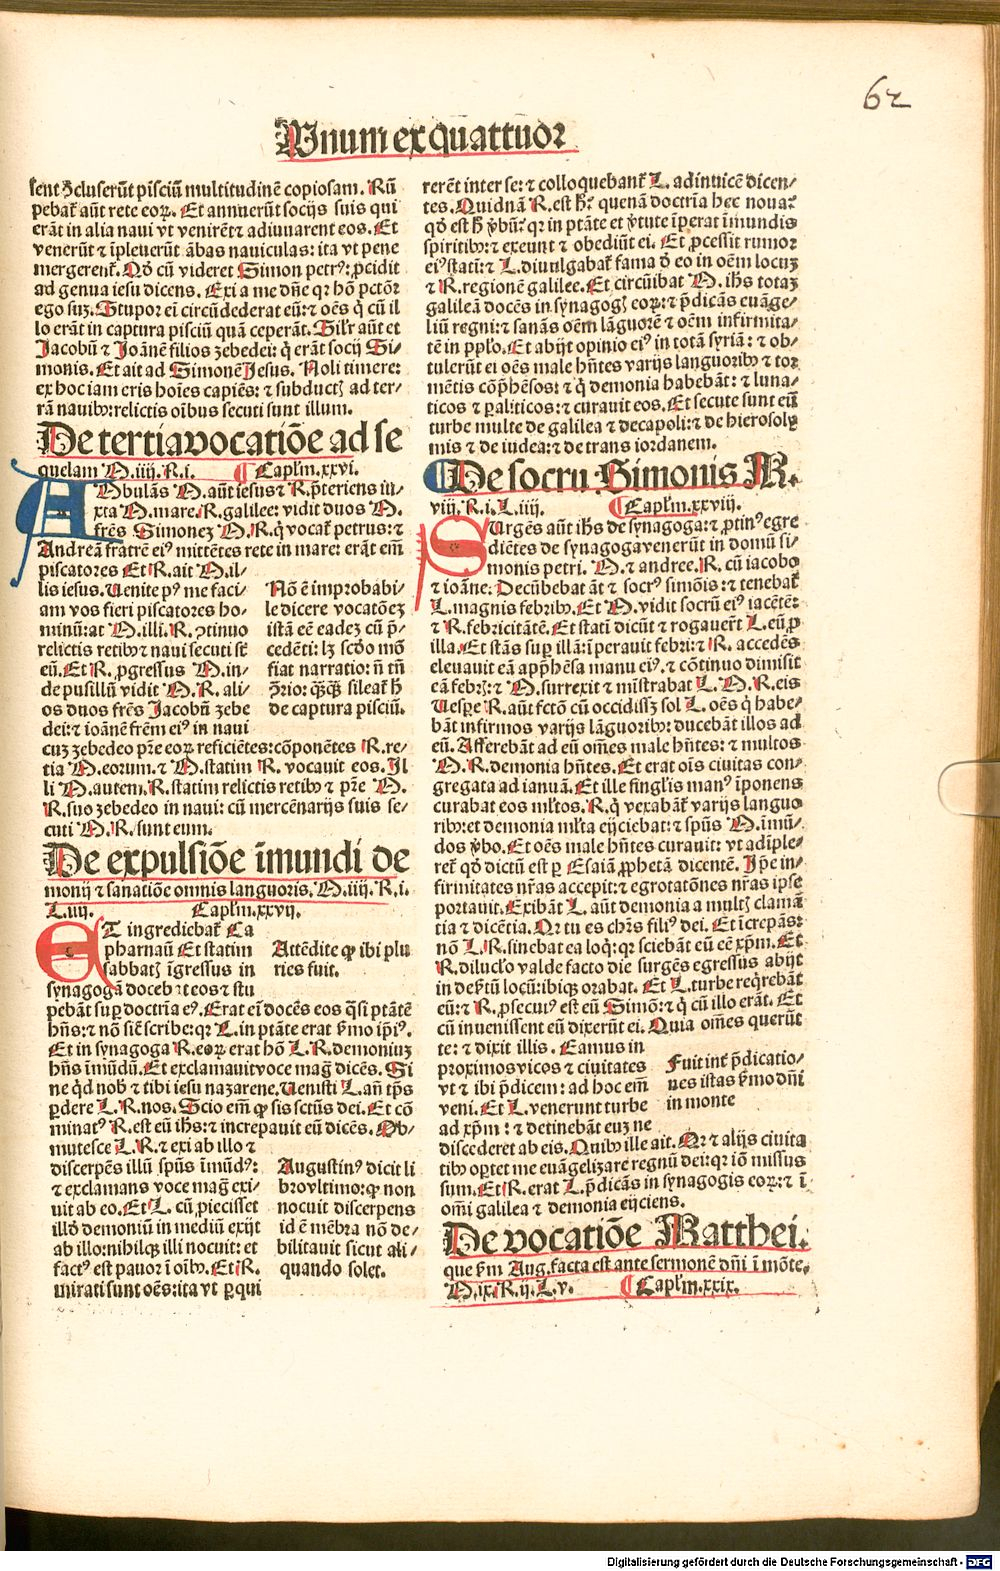 62
Unum ex quattuor
sent ꝯcluserūt pisciū multitudinē copiosam. Rū
pebaƭ aūt rete eoꝝ. Et annuerūt socijs suis qui
erāt in alia naui vt venirēt ⁊ adiuuarent eos. Et
venerūt ⁊ īpleuerūt ābas nauiculas: ita vt pene
mergerenƭ. Qd̓ cū videret Simon petrꝰ: ꝓcidit
ad genua iesu dicens. Exi a me dn̄e qꝛ hō pctōr
ego suꝫ. Stupor ei̅ circūdederat eū: ⁊ oēs q̇ cū il
lo erāt in captura pisciū quā ceperāt. Silr̄ aūt et
Jacobū ⁊ Joānē filios zebedei: q̇ erāt socij Si-
monis. Et ait ad Simonē Jesus. Noli timere:
ex hoc iam eris hoīes capiēs: ⁊ subductꝭ ad ter-
rā nauibꝰ: relictis oībus secuti sunt illum.
De tertia vocatiōe ad se
quelam M.iiij.R.i. Caplm̄.xxvi.
AMbulās M. aūt iesus ⁊ R. p̄teriens iu-
xta M. mare. R. galilee: vidit duos M.
frēs Simoneꝫ M. R. q̇ vocaƭ petrus: ⁊
Andreā fratrē eiꝰ mittētes rete in mare: erāt em̄
piscatores Et R. ait M. il-
lis iesus. Uenite pꝰ me faci-
am vos fieri piscatores ho-
minū: at M. illi. R. ꝯtinuo
relictis retibꝰ ⁊ naui secuti sƭ
eū. Et R. ꝓgressus M. in-
de pusillū vidit M. R. ali-
os duos frēs Jacobū zebe
dei: ⁊ ioānē frēm eiꝰ in naui
Nō ē improbabi-
le dicere vocatōeꝫ
istā eē eadeꝫ cū p̄-
cedēti: lꝫ scd̄o mō
fiat narratio: n̄ tn̄
ꝓrio: qꝫqꝫ sileaƭ h̄
de captura pisciū.
cuꝫ zebedeo pr̄e eoꝝ reficiētes: cōponētes R. re-
tia M. eorum. ⁊ M. statim R. vocauit eos. Il
li M. autem. R. statim relictis retibꝰ ⁊ pr̄e M.
R. suo zebedeo in naui: cū mercēnarijs suis se-
cuti M. R. sunt eum.
De expulsiōe īmundi de
monij ⁊ sanatiōe omnis languoris. M.iiij.R.i.
L.iiij. Caplm̄.xxvij.
ET ingrediebaƭ Ca
pharnaū Et statim
sabbatꝭ īgressus in
synagogā docebat eos ⁊ stu
Attēdite ꝙ ibi plu
ries fuit.
pebāt suꝑ doctria eꝰ. Erat ei̅ docēs eos q̄si ptātē
hn̄s: ⁊ nō sic̄ scribe: qꝛ L. in ptāte erat ẜmo ip̄iꝰ.
Et in synagoga R. eoꝝ erat hō L. R. demoniuꝫ
hn̄s īmūdū. Et exclamauit voce magꝭ dicēs. Si
ne q̇d nob̓ ⁊ tibi iesu nazarene. Uenisti L. an̄ tp̄s
ꝑdere L. R. nos. Scio em̄ ꝙ sis sctūs dei. Et cō
minatꝰ R. est eū ih̄s: ⁊ increpauit eū dicēs. Ob-
mutesce L. R. ⁊ exi ab illo ⁊
discerpēs illū spūs īmūdꝰ:
⁊ exclamans voce magꝭ exi-
uit ab eo. Et L. cū piecisset
illd̓ demoniū in mediū exijt
ab illo: nihilqꝫ illi nocuit: et
factꝰ est pauor ī oībꝰ. Et R.
mirati sunt oēs: ita vt ꝑqui
Augustinꝰ dicit li
bro vltimo: ꝙ non
nocuit discerpens
id ē mēbra nō de-
bilitauit sicut ali-
quando solet.
rerēt inter se: ⁊ colloquebanƭ L. adinuicē dicen-
tes. Quidnā R. est hꝰ quenā doctria hec noua?
qd̓ est h̄ ꝟbū? qꝛ in ptāte et ꝟtute īperat īmundis
spiritibꝰ: ⁊ exeunt ⁊ obediūt ei. Et ꝓcessit rumor
eiꝰ statū: ⁊ L. diuulgabaƭ fama d̓ eo in oēm locuꝫ
⁊ R. regionē galilee. Et circūibat M. ih̄s totaꝫ
galileā docēs in synagogꝭ eoꝝ: ⁊ p̄dicās euāge-
liū regni: ⁊ sanās oēm lāguorē ⁊ oēm infirmita-
tē in ppl̄o. Et abijt opinio eiꝰ in totā syriā: ⁊ ob-
tulerūt ei oēs male hn̄tes varijs languoribꝰ ⁊ tor
mētis cōp̄hēsos: ⁊ q̇ demonia habebāt: ⁊ luna-
ticos ⁊ paliticos: ⁊ curauit eos. Et secute sunt eū
turbe multe de galilea ⁊ decapoli: ⁊ de hierosoly
mis ⁊ de iudea: ⁊ de trans iordanem.
De socru Simonis M.
viij.R.i.L.iiij. Caplm̄.xxviij.
SUrgēs aūt ih̄s de synagoga: ⁊ ꝓtinꝰ egre
diētes de synagoga venerūt in domū si-
monis petri. M. ⁊ andree. R. cū iacobo
⁊ ioāne: Decūbebat āt ⁊ socrꝰ simōis: ⁊ tenebaƭ
L. magnis febribꝰ. Et M. vidit socrū eiꝰ iacētē:
⁊ R. febricitātē. Et stati dicūt ⁊ rogauerƭ L. eū ꝓ
illa. Et stās suꝑ illā: īperauit febri: ⁊ R. accedēs
eleuauit eā app̄hēsa manu eiꝰ. ⁊ cōtinuo dimisit
eā febrꝭ: ⁊ M. surrexit ⁊ mīstrabat L. M. R. eis
Uesꝑe R. aūt fctō cū occidissꝫ sol L. oēs q̇ habe-
bāt infirmos varijs lāguoribꝰ: ducebāt illos ad
eū. Afferebāt ad eū om̄es male hn̄tes: ⁊ multos
M. R. demonia hn̄tes. Et erat oīs ciuitas con-
gregata ad ianuā. Et ille singlis manꝰ īponens
curabat eos mltos. R. q̇ vexabāƭ varijs languo
ribꝰ: et demonia mlta eijciebat: ⁊ spūs M. īmū-
dos ꝟbo. Et oēs male hn̄tes curauit: vt adiple-
reƭ qd̓ dictū est ꝑ Esaiā ꝓphetā dicentē. Ip̄e in-
firmitates nr̄as accepit: ⁊ egrotatōnes nr̄as ipse
portauit. Exibāt L. aūt demonia a multꝭ clamā
tia ⁊ dicētia. Qꝛ tu es chr̄s filiꝰ dei. Et īcrepās:
nō L. R. sinebat ea loq̇: qꝛ sciebāt eū eē xp̄m. Et
R. diluclo valde facto die surgēs egressus abijt
in desertū locū: ibiqꝫ orabat. Et L. turbe req̇rebāt
eū: ⁊ R. ꝓsecutꝰ est eū Simō: ⁊ q̇ cū illo erāt. Et
cū inuenissent eū dixerūt ei. Quia om̄es querūt
te: ⁊ dixit illis. Eamus in
proximos vicos ⁊ ciuitates
vt ⁊ ibi p̄dicem: ad hoc em̄
veni. Et L. venerunt turbe
ad xp̄m: ⁊ detinebāt euꝫ ne
Fuit inƭ p̄dicatio-
nes istas ẜmo dn̄i
in monte
discederet ab eis. Quibꝰ ille ait. Qꝛ ⁊ alijs ciuita
tibꝰ oꝑtet me euāgelizare regnū dei: qꝛ iō missus
sum. Et R. erat L. p̄dicās in synagogis eoꝝ: ⁊ ī
om̄i galilea ⁊ demonia eijciens.
De vocatiōe Matthei.
que ẜm Aug. facta est ante sermonē dn̄i ī mōte.
M.ix.R.ij.L.v. Caplm̄.xxix.
Digitalisierung gefördert durch die Deutsche Forschungsgemeinschaft - DFG